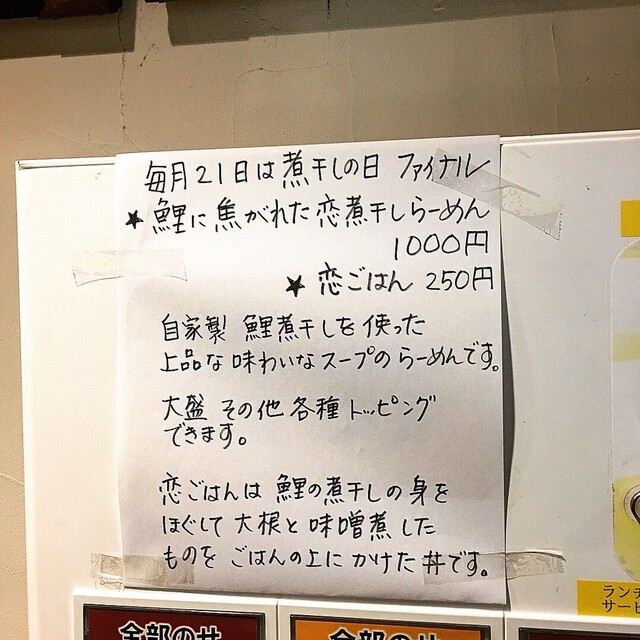 毎月21日は煮干しの日 ファイナル
★鯉に焦がれた恋煮干しらーめん
1000円
★恋ごはん 250円
自家製 鯉煮干しを使った
上品な味わいなスープのらーめんです。
大盛 その他各種トッピング
できます。
恋ごはんは 鯉の煮干しの身を
ほぐして 大根と味噌煮した
ものを ごはんの上にかけた丼です。
ランチ
サービ
全部のせ
全部のせ